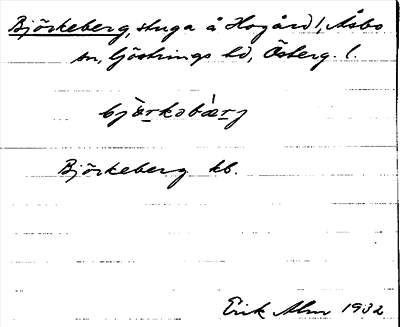 Björkeberg, stuga å Hogård, Åsbo
sn, Göstrings hd, Österg. l.
bjärkəbærj
Björkeberg kb.
Erik Alm 1932